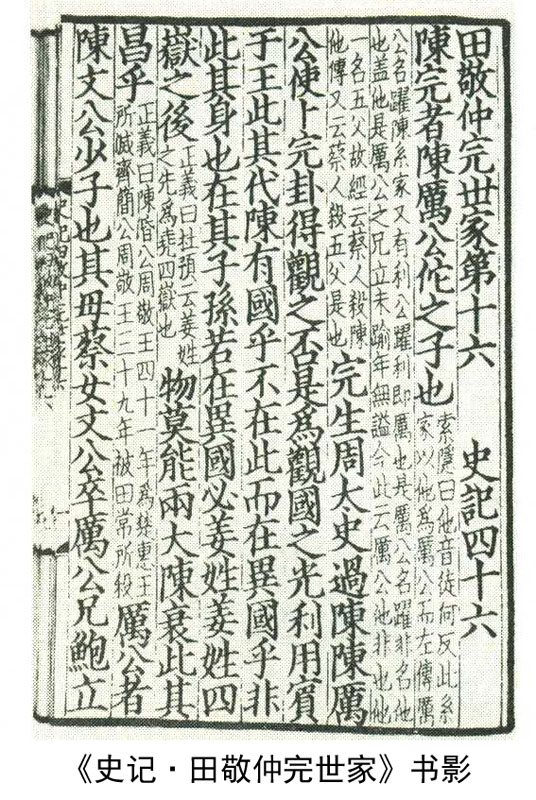 田敬仲完世家第十六 史記四十六
陳完者陳厲公佗之子也
索隱曰他音徒何反此系
家以他為厲公而左傳厲
公名躍陳系家又有利公躍利即厲也是厲公名躍非名他
也蓋他是厲公之兄立未踰年無謚今此云厲公他非也他
一名五父故經云蔡人殺陳
他傳又云蔡人殺五父是也
完生周太史過陳陳厲
公使卜完卦得觀之否是為觀國之光利用賓
于王此其代陳有國乎不在此而在異國乎非
此其身也在其子孫若在異國必姜姓姜姓四
嶽之後
正義曰杜預云姜姓
之先為堯四嶽也
物莫能兩大陳衰此其
昌乎
正義曰陳湣公周敬王四十一年為楚惠王
所滅齊簡公周敬王三十九年被田常所殺
厲公者
陳文公少子也其母蔡女文公卒厲公兄鮑立
《史记·田敬仲完世家》书影